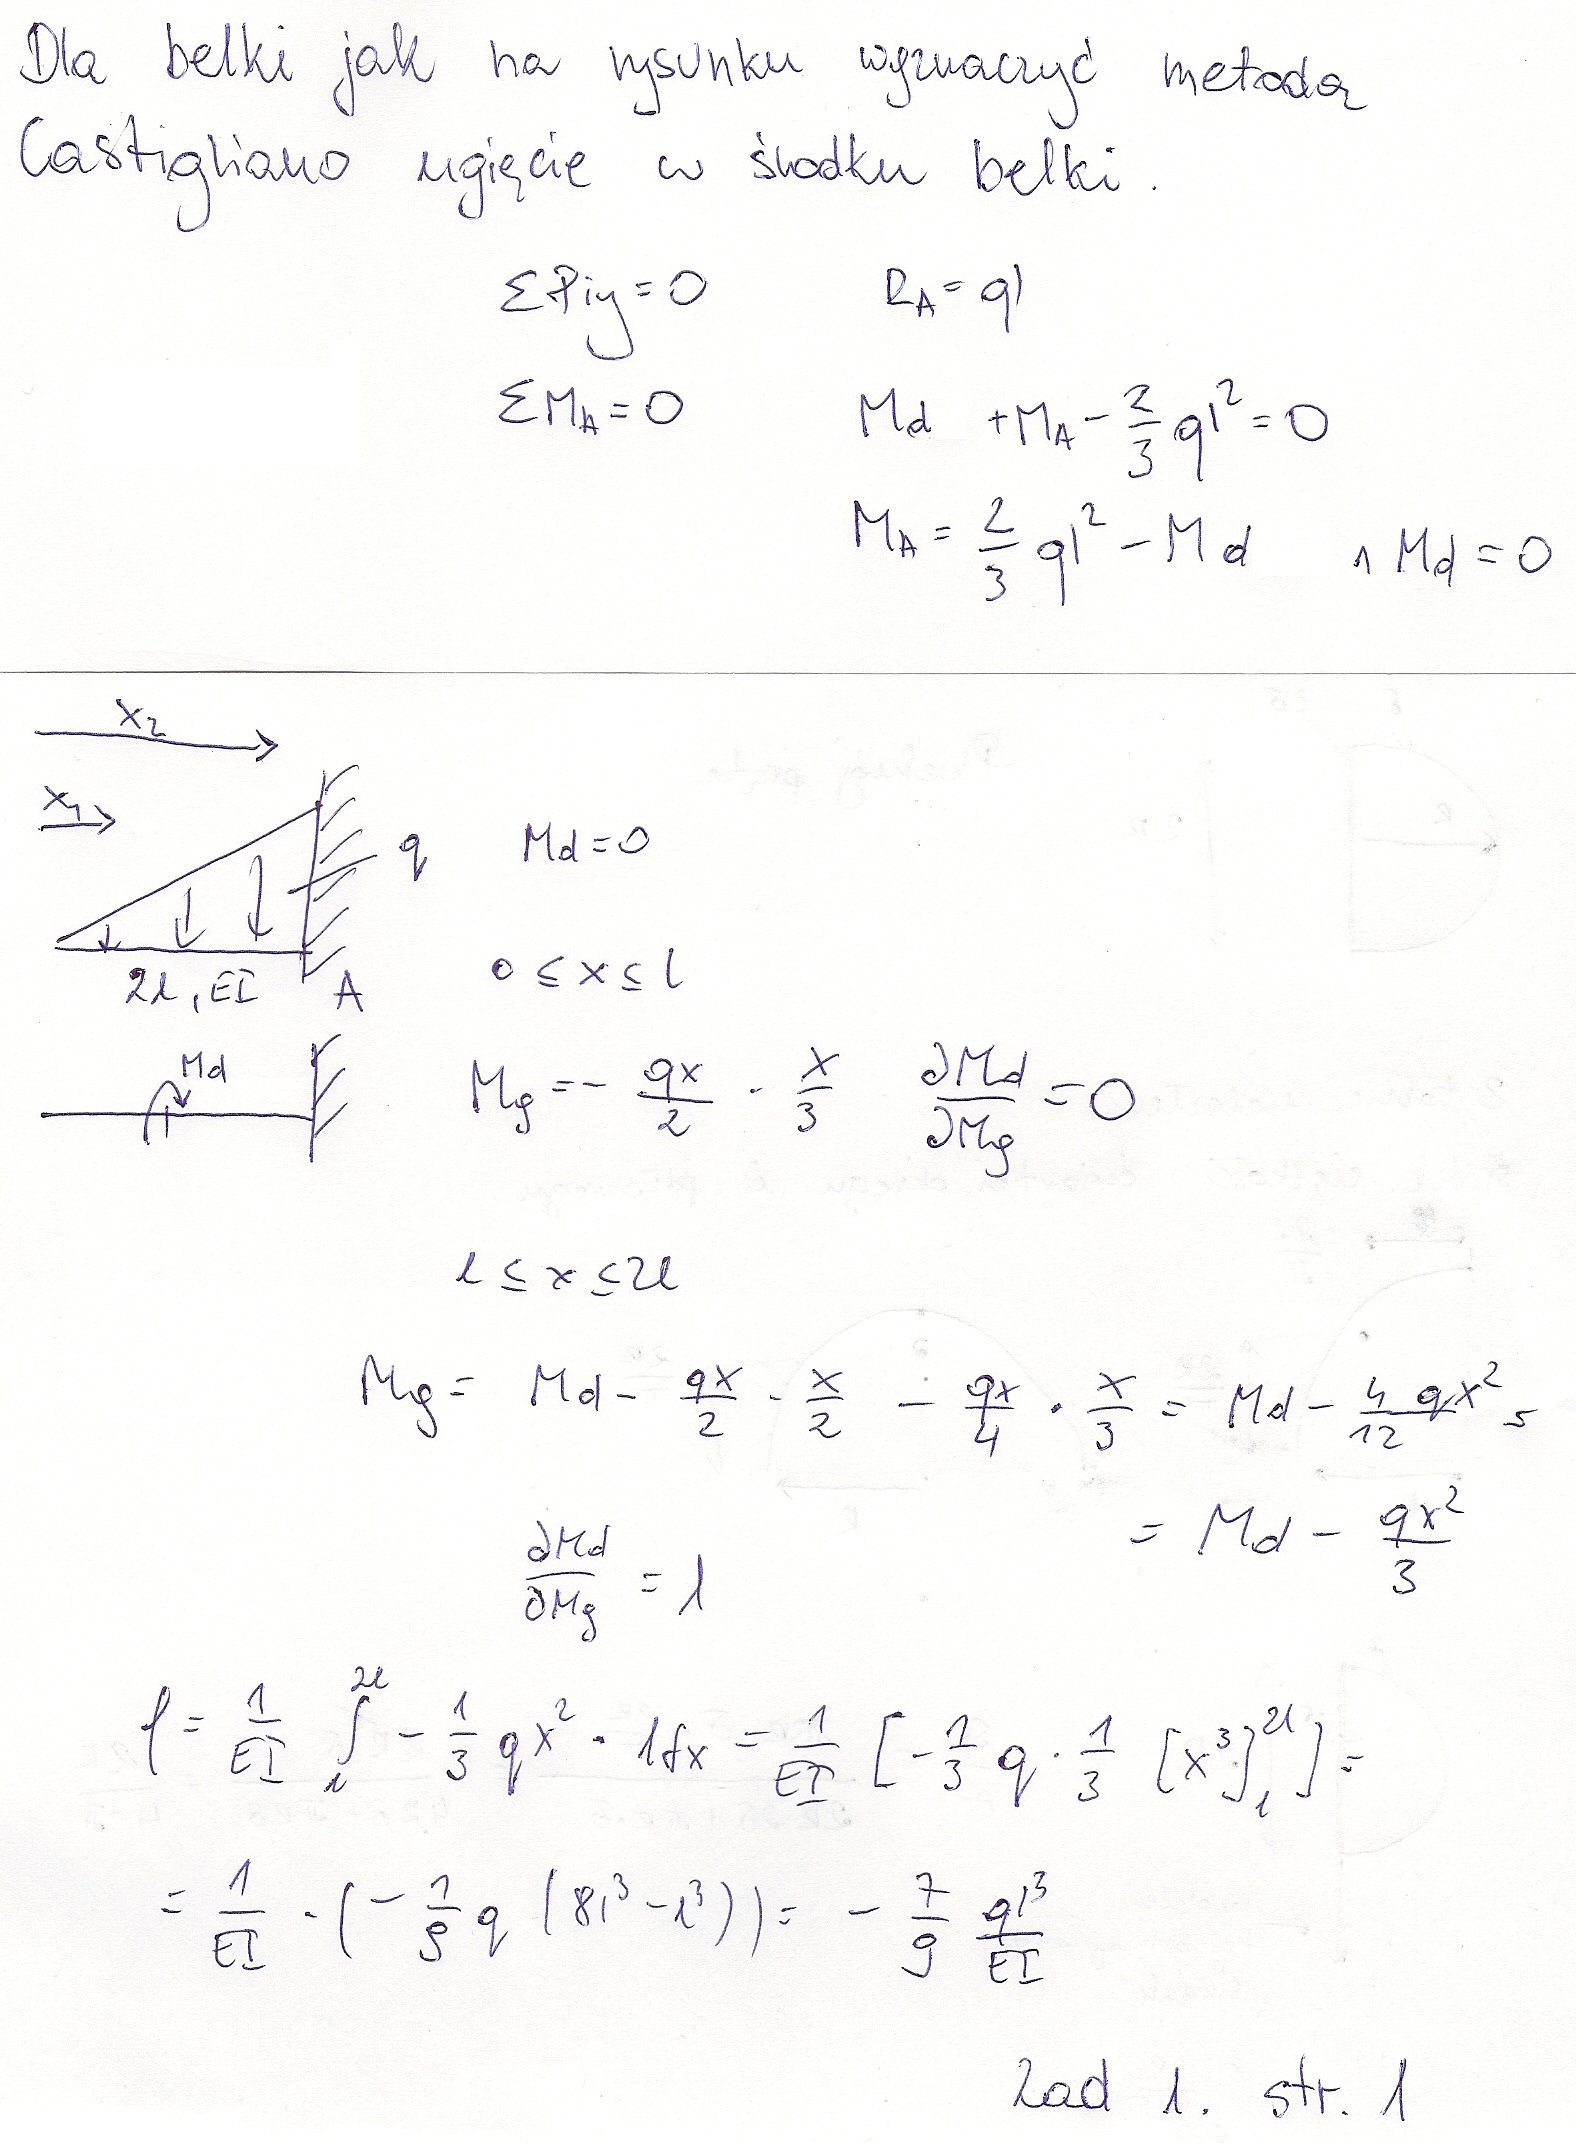 Dla belki jak na rysunku wyznaczyć metodą
Castigliano ugięcie w środku belki.
ΣPiy = 0 R_A = ql
ΣM_A = 0 Md + M_A - 2/3 ql² = 0
M_A = 2/3 ql² - Md ∧ Md = 0
x₂
x₁
q
Md = 0
2l, EI A
0 ≤ x ≤ l
Md
Mg = - qx/2 · x/3 ∂Md/∂Mg = 0
l ≤ x ≤ 2l
Mg = Md - qx/2 · x/2 - qx/4 · x/3 = Md - 4/12 qx² =
= Md - qx²/3
∂Md/∂Mg = 1
f = 1/EI ∫_l^2l - 1/3 qx² · 1dx = 1/EI [-1/3 q · 1/3 [x³]_l^2l] =
= 1/EI · (- 1/9 q (8l³ - l³)) = - 7/9 ql³/EI
Zad 1. str. 1